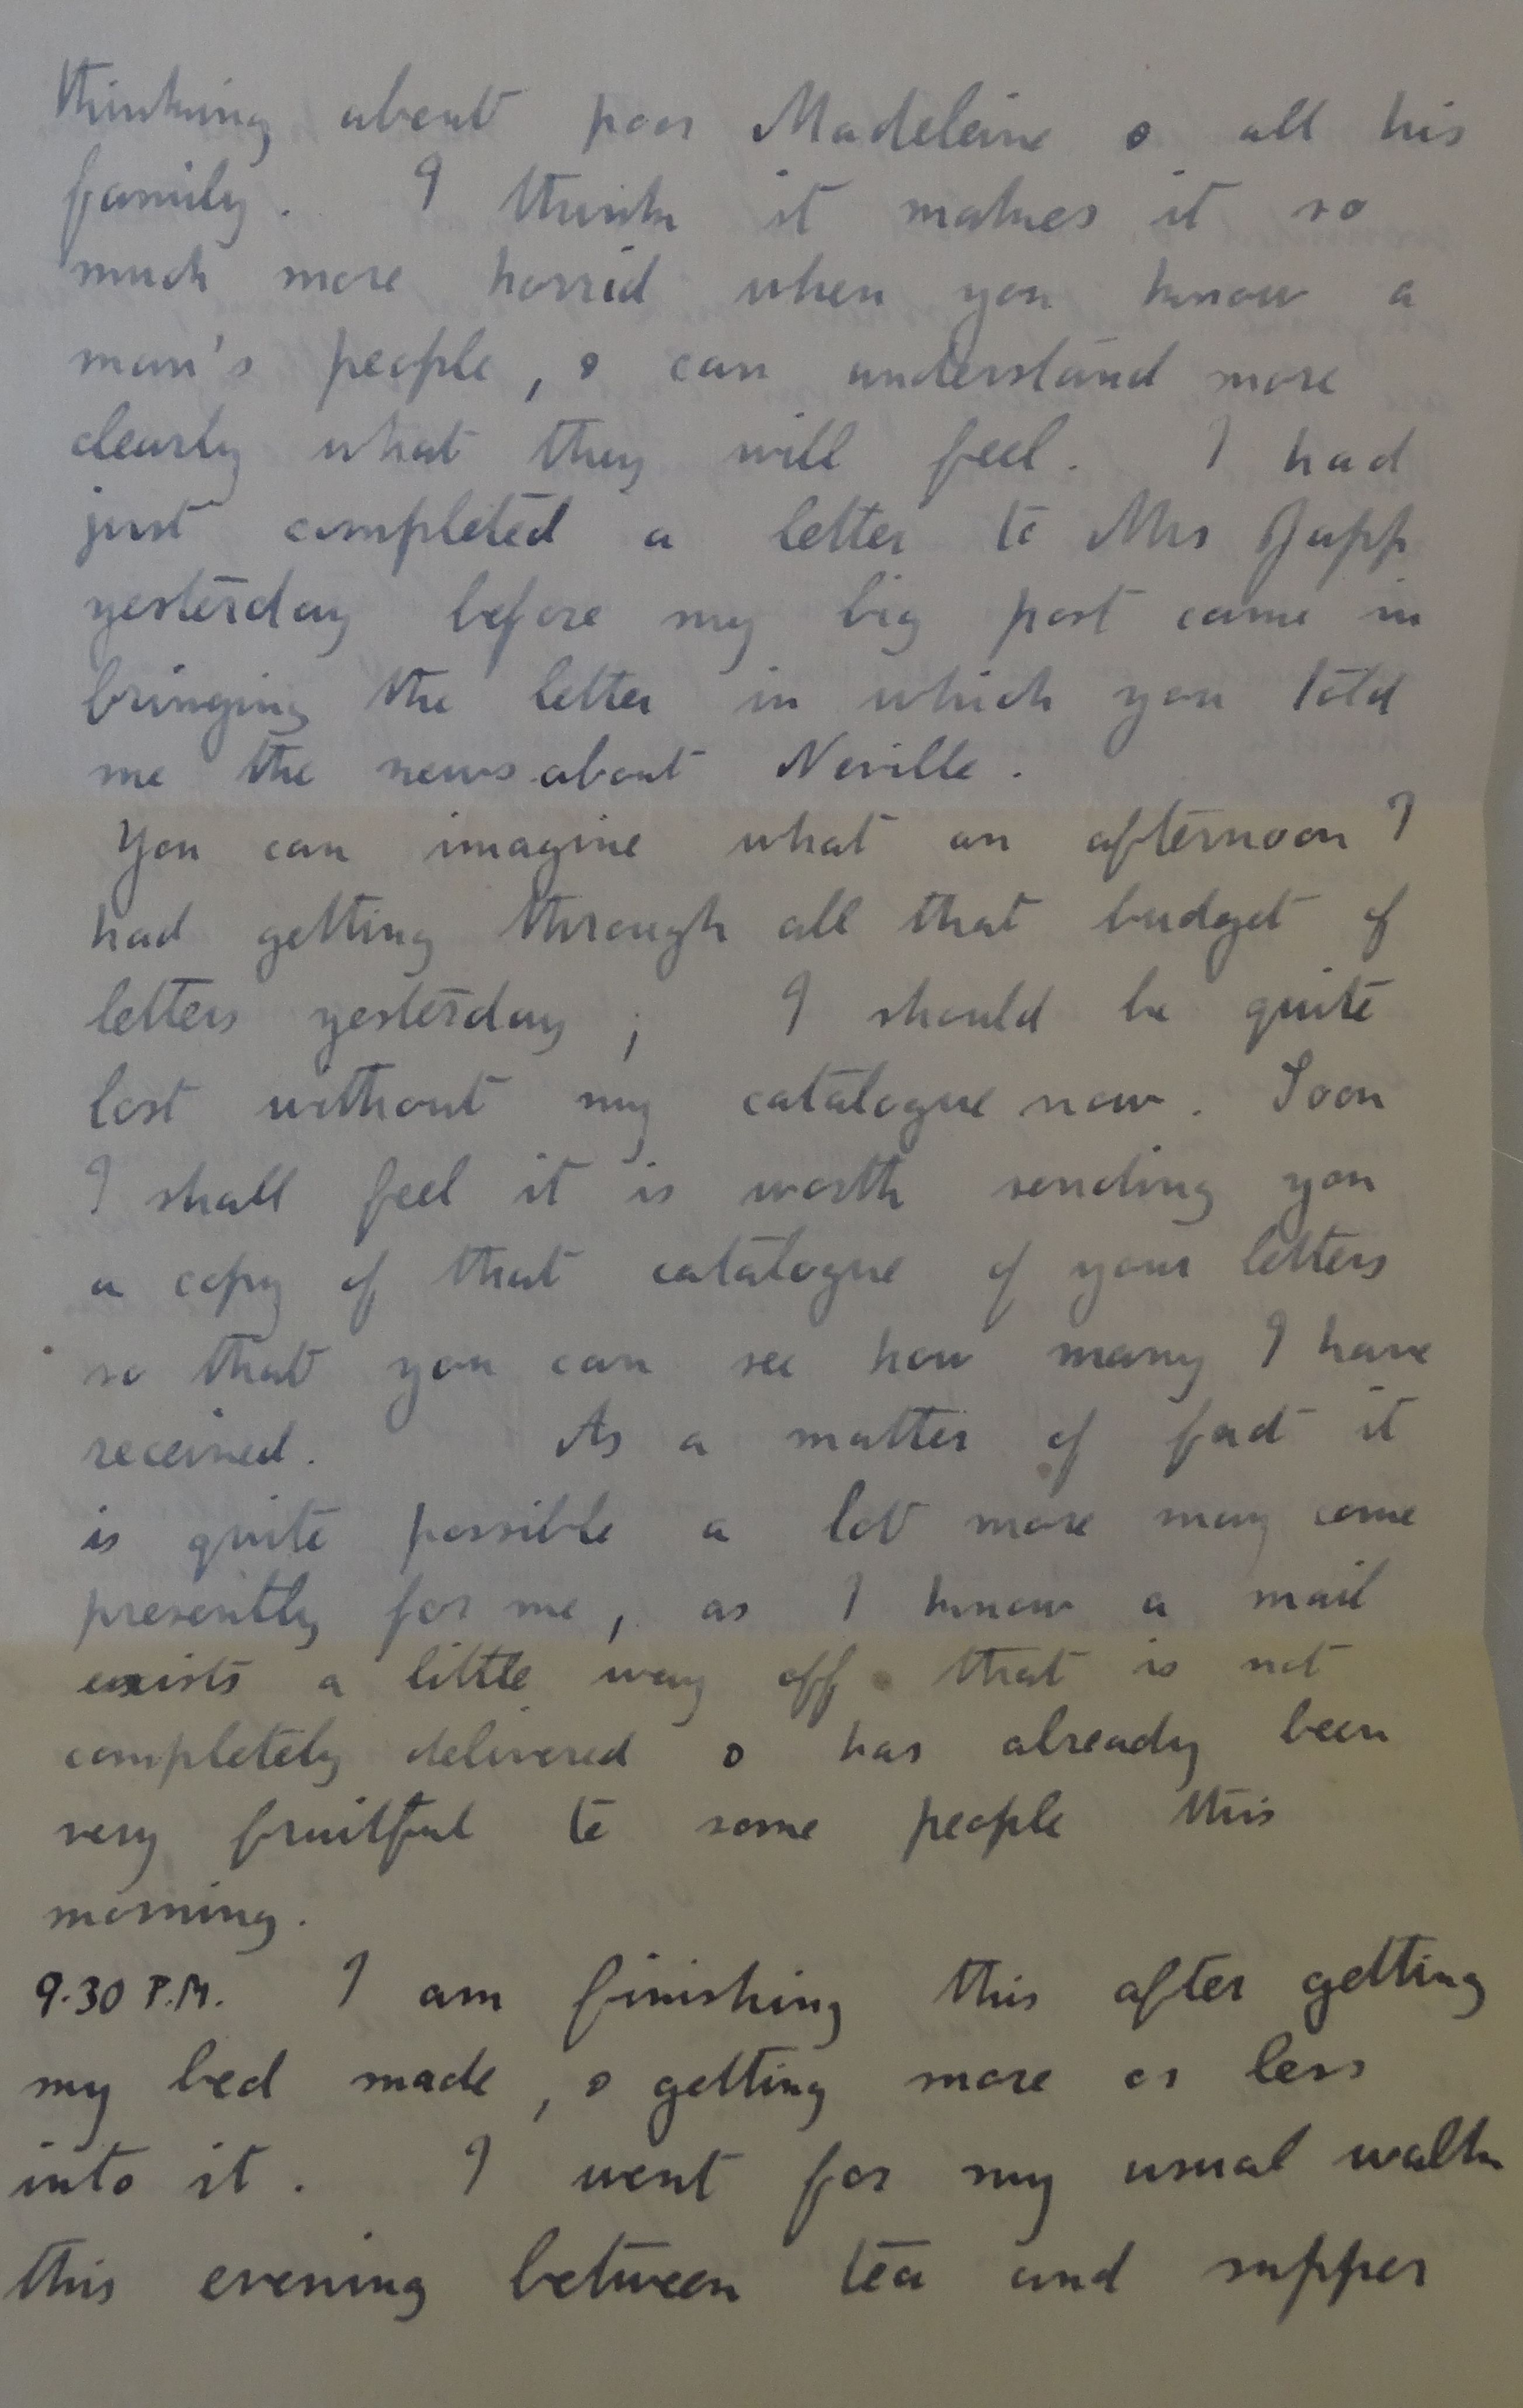 thinking about poor Madeleine & all his
family. I think it makes it so
much more horrid when you know a
man's people, & can understand more
clearly what they will feel. I had
just completed a letter to Mrs Japp
yesterday before my big post came in
bringing the letter in which you told
me the news about Neville.
You can imagine what an afternoon I
had getting through all that budget of
letters yesterday; I should be quite
lost without my catalogue now. Soon
I shall feel it is worth sending you
a copy of that catalogue of your letters
so that you can see how many I have
received. As a matter of fact it
is quite possible a lot more may come
presently for me, as I know a mail
exists a little way off that is not
completely delivered & has already been
very fruitful to some people this
morning.
9.30 P.M. I am finishing this after getting
my bed made, & getting more or less
into it. I went for my usual walk
this evening between tea and supper